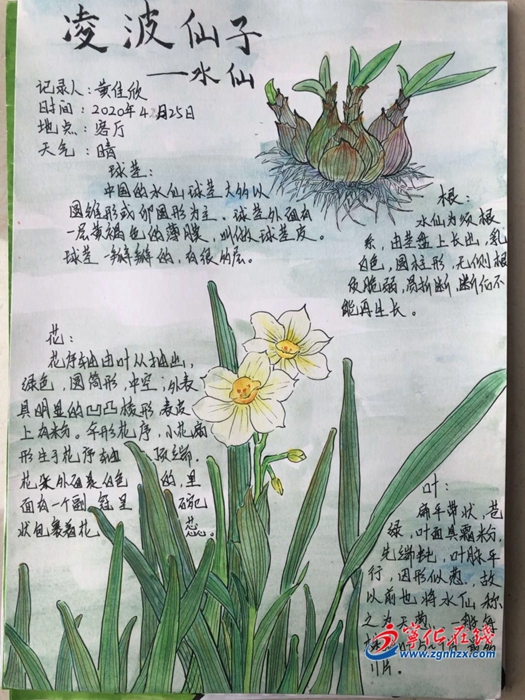 凌波仙子
——水仙
记录人：黄佳欣
时间：2020年4月25日
地点：客厅
天气：晴
球茎：
中国的水仙球茎大的以
圆锥形或卵圆形为主。球茎外面有
一层黄褐色的薄膜，叫做球茎皮。
球茎一瓣瓣的，有很多层。
根：
水仙为须根
系，由茎盘上长出，乳
白色，圆柱形，无侧根
质脆弱，易折断，断后不
能再生长。
花：
花序轴由叶丛抽出，
绿色，圆筒形，中空；外表
具明显的凹凸棱形，表皮
上有粉。伞形花序，小花扇
形生于花序轴顶端。
花朵外面表白色的，里
面有一个副冠呈碗
状包裹着花蕊。
叶：
扁平带状，苍
绿，叶面具霜粉，
先端钝，叶脉平
行，因形似葱，故
以前也将水仙称
之为天葱
片。
宁化在线
www.zgnhzx.com